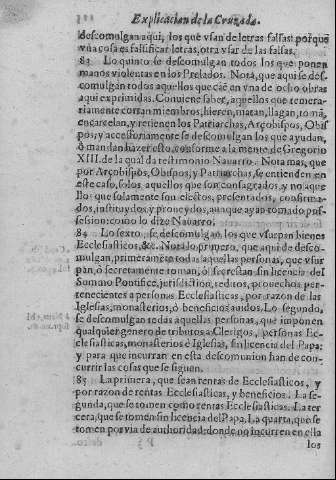 Explicacion de la Cruzada.
descomulgan aqui, los que vsan de letras falsas: porque
vna cosa es falsificar letras, otra vsar de las falsas.
83 Lo quinto se descomulgan todos los que ponen
manos violentas en los Prelados. Nota, que aqui se des
comulgan todos aquellos que caē en vna de ocho obras
aqui exprimidas. Conuiene saber, aquellos que temera-
riamente cortan miembros, hieren, matan, llagan, tomā,
encarcelan, y retienen los Patriarchas, Arçobispos, Obis
pos, y accessoriamente se descomulgan los que ayudan,
ò mandan hazer esto, conforme a la mente de Gregorio
XIII. de la qual da testimonio Nauarro. Nota mas, que
por Arçobispos, Obispos, y Patriarchas, se entienden en
este caso, solos aquellos que son consagrados, y no aque
llos que solamente son electos, presentados, confirma-
dos, instituydos, y proueydos, aunque ayan tomado pos-
session como lo dize Nauarro.
84 Lo sexto, se descomulgan los que vsurpan bienes
Ecclesiasticos, &c. Nota lo primero, que aqui se desco-
mulgan, primeramēte todas aquellas personas, que vsur
pan, ò secretamente toman, ò secrestan sin licencia del
Summo Pontifice, jurisdiction, reditos, prouechos, per-
tenecientes a personas Ecclesiasticas, por razon de las
Iglesias, monasterios, ò beneficios auidos. Lo segundo,
se descomulgan todas aquellas personas, que imponen
qualquier genero de tributos a Clerigos, personas Ec-
clesiasticas, monasterios è Iglesias, sin licencia del Papa:
y para que incurran en esta descomunion han de con-
currir las cosas que se siguen.
85 La primera, que sean rentas de Ecclesiasticos, y
por razon de rentas Ecclesiasticas, y beneficios. La se-
gunda, que se tomen como rentas Ecclesiasticas. La ter
cera, que se tomen sin licencia del Papa. La quarta, que se
tomen por via de authoridad: donde no incurren en ella
los